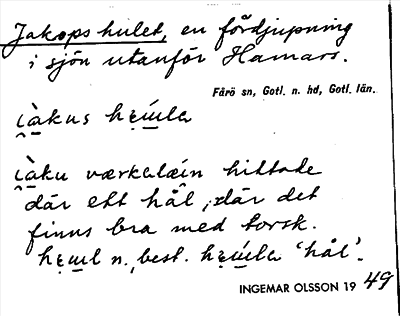 Jakops hulet, en fördjupning
i sjön utanför Hamars.
Fårö sn, Gotl. n. hd, Gotl. län.
i̯àkus
i̯àku værkalæin hittade
där ett hål, där det
finns bra med torsk.
n., best. 'hål'.
INGEMAR OLSSON 1949